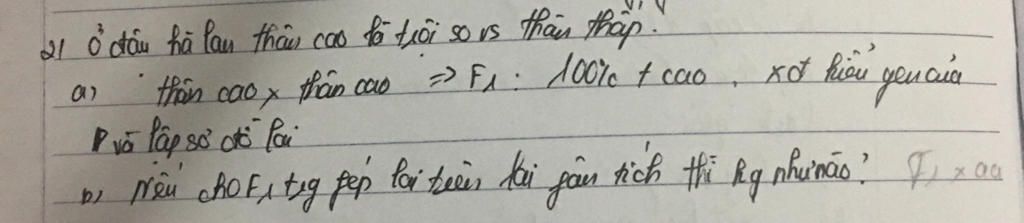 2) Ở đậu hà lan thân cao là trội so vs thân thấp.
a) thân cao x thân cao => F1: 100% t cao, xđ kiểu gen của
P và lập sơ đồ lai
b) Nếu cho F1 trg phép lai trên lai phân tích thì kq như nào? F1 x aa